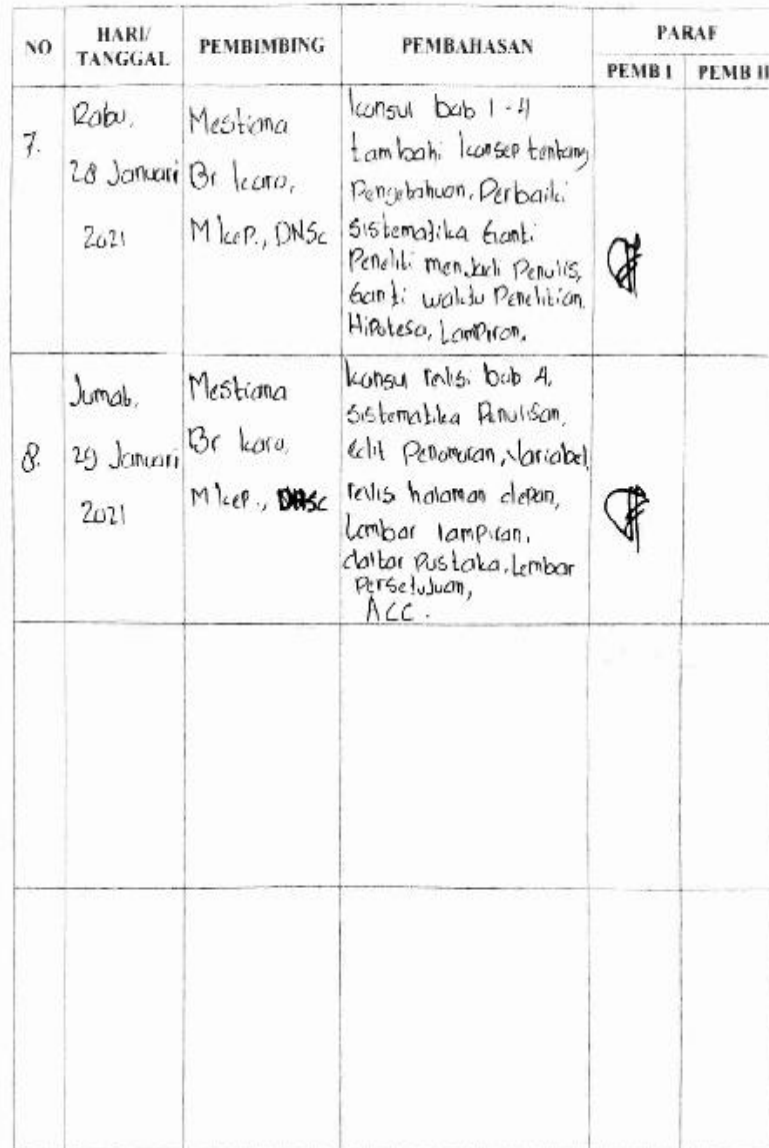 NO HARI/ TANGGAL PEMBIMBING PEMBAHASAN PARAF
PEMB I PEMB II
7.
Rabu,
28 Januari
2021
Mestiana
Br karo,
M kep., DNSc
konsul bab 1 - 4
tambahi konsep tentang
Pengetahuan, Perbaiki
sistematika Ganti
Peneliti menjadi Penulis,
Ganti waktu Penelitian,
Hipotesa, Lampiran,
8.
Jumat,
29 Januari
2021
Mestiana
Br karo,
M kep., DNSc
konsul revisi bab 4,
sistematika Penulisan,
edit Penomoran, Variabel,
revisi halaman depan,
Lembar lampiran,
daftar Pustaka, Lembar
Persetujuan,
ACC.